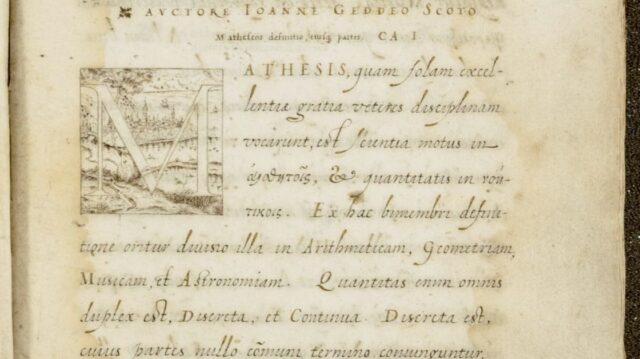 AVCTORE IOANNE GEDDEO SCOTO
Matheseos definitio, eiusq. partes. CA I
MATHESIS, quam solam excel-
lentiæ gratia veteres disciplinam
vocarunt, est scientia motus in
αἰσθητοῖς, & quantitatis in νοη-
τικοις. Ex hac bimembri defini-
tione oritur diuisio illa in Arithmeticam, Geometriam,
Musicam, et Astronomiam. Quantitas enim omnis
duplex est, Discreta, et Continua. Discreta est,
cuius partes nullo cōmuni termino coniunguntur,